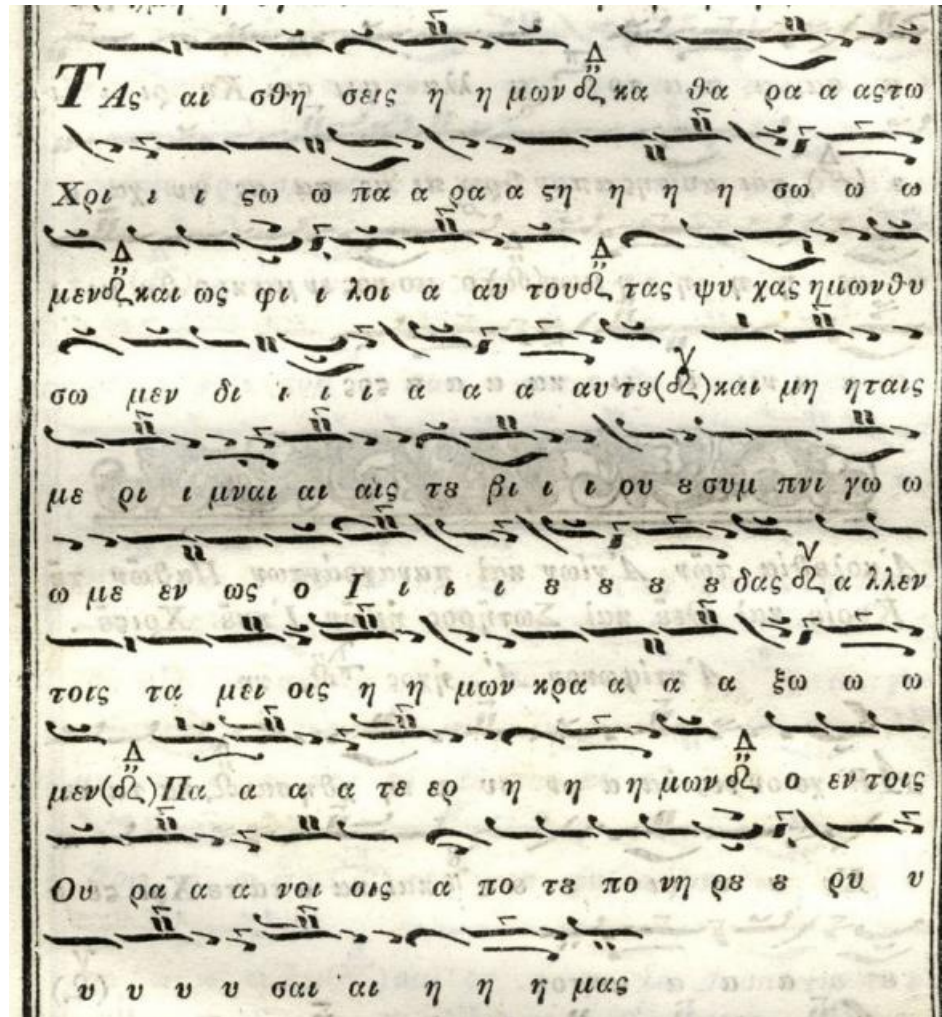 ΤΑς αι σθη σεις η η μων κα θα ρα α αςτω
Χρι ι ι ςω ω πα α ρα α ςη η η η σω ω ω
μεν και ως φι ι λοι α αυ του τας ψυ χας ημωνθυ
σω μεν δι ι ι ι α α α αυ τȣ () και μη ηταις
με ρι ι μναι αι αις τȣ βι ι ι ου ȣ συμ πνι γω ω
ω με εν ως ο Ι ι ι ι ȣ ȣ ȣ ȣ δας α λλεν
τοις τα μει οις η η μων κρα α α α ξω ω ω
μεν () Πα α α α τε ερ η η η μων ο εν τοις
Ου ρα α α νοι οις α πο τȣ πο νη ρȣ ȣ ρυ υ
υ υ υ υ σαι αι η η η μας